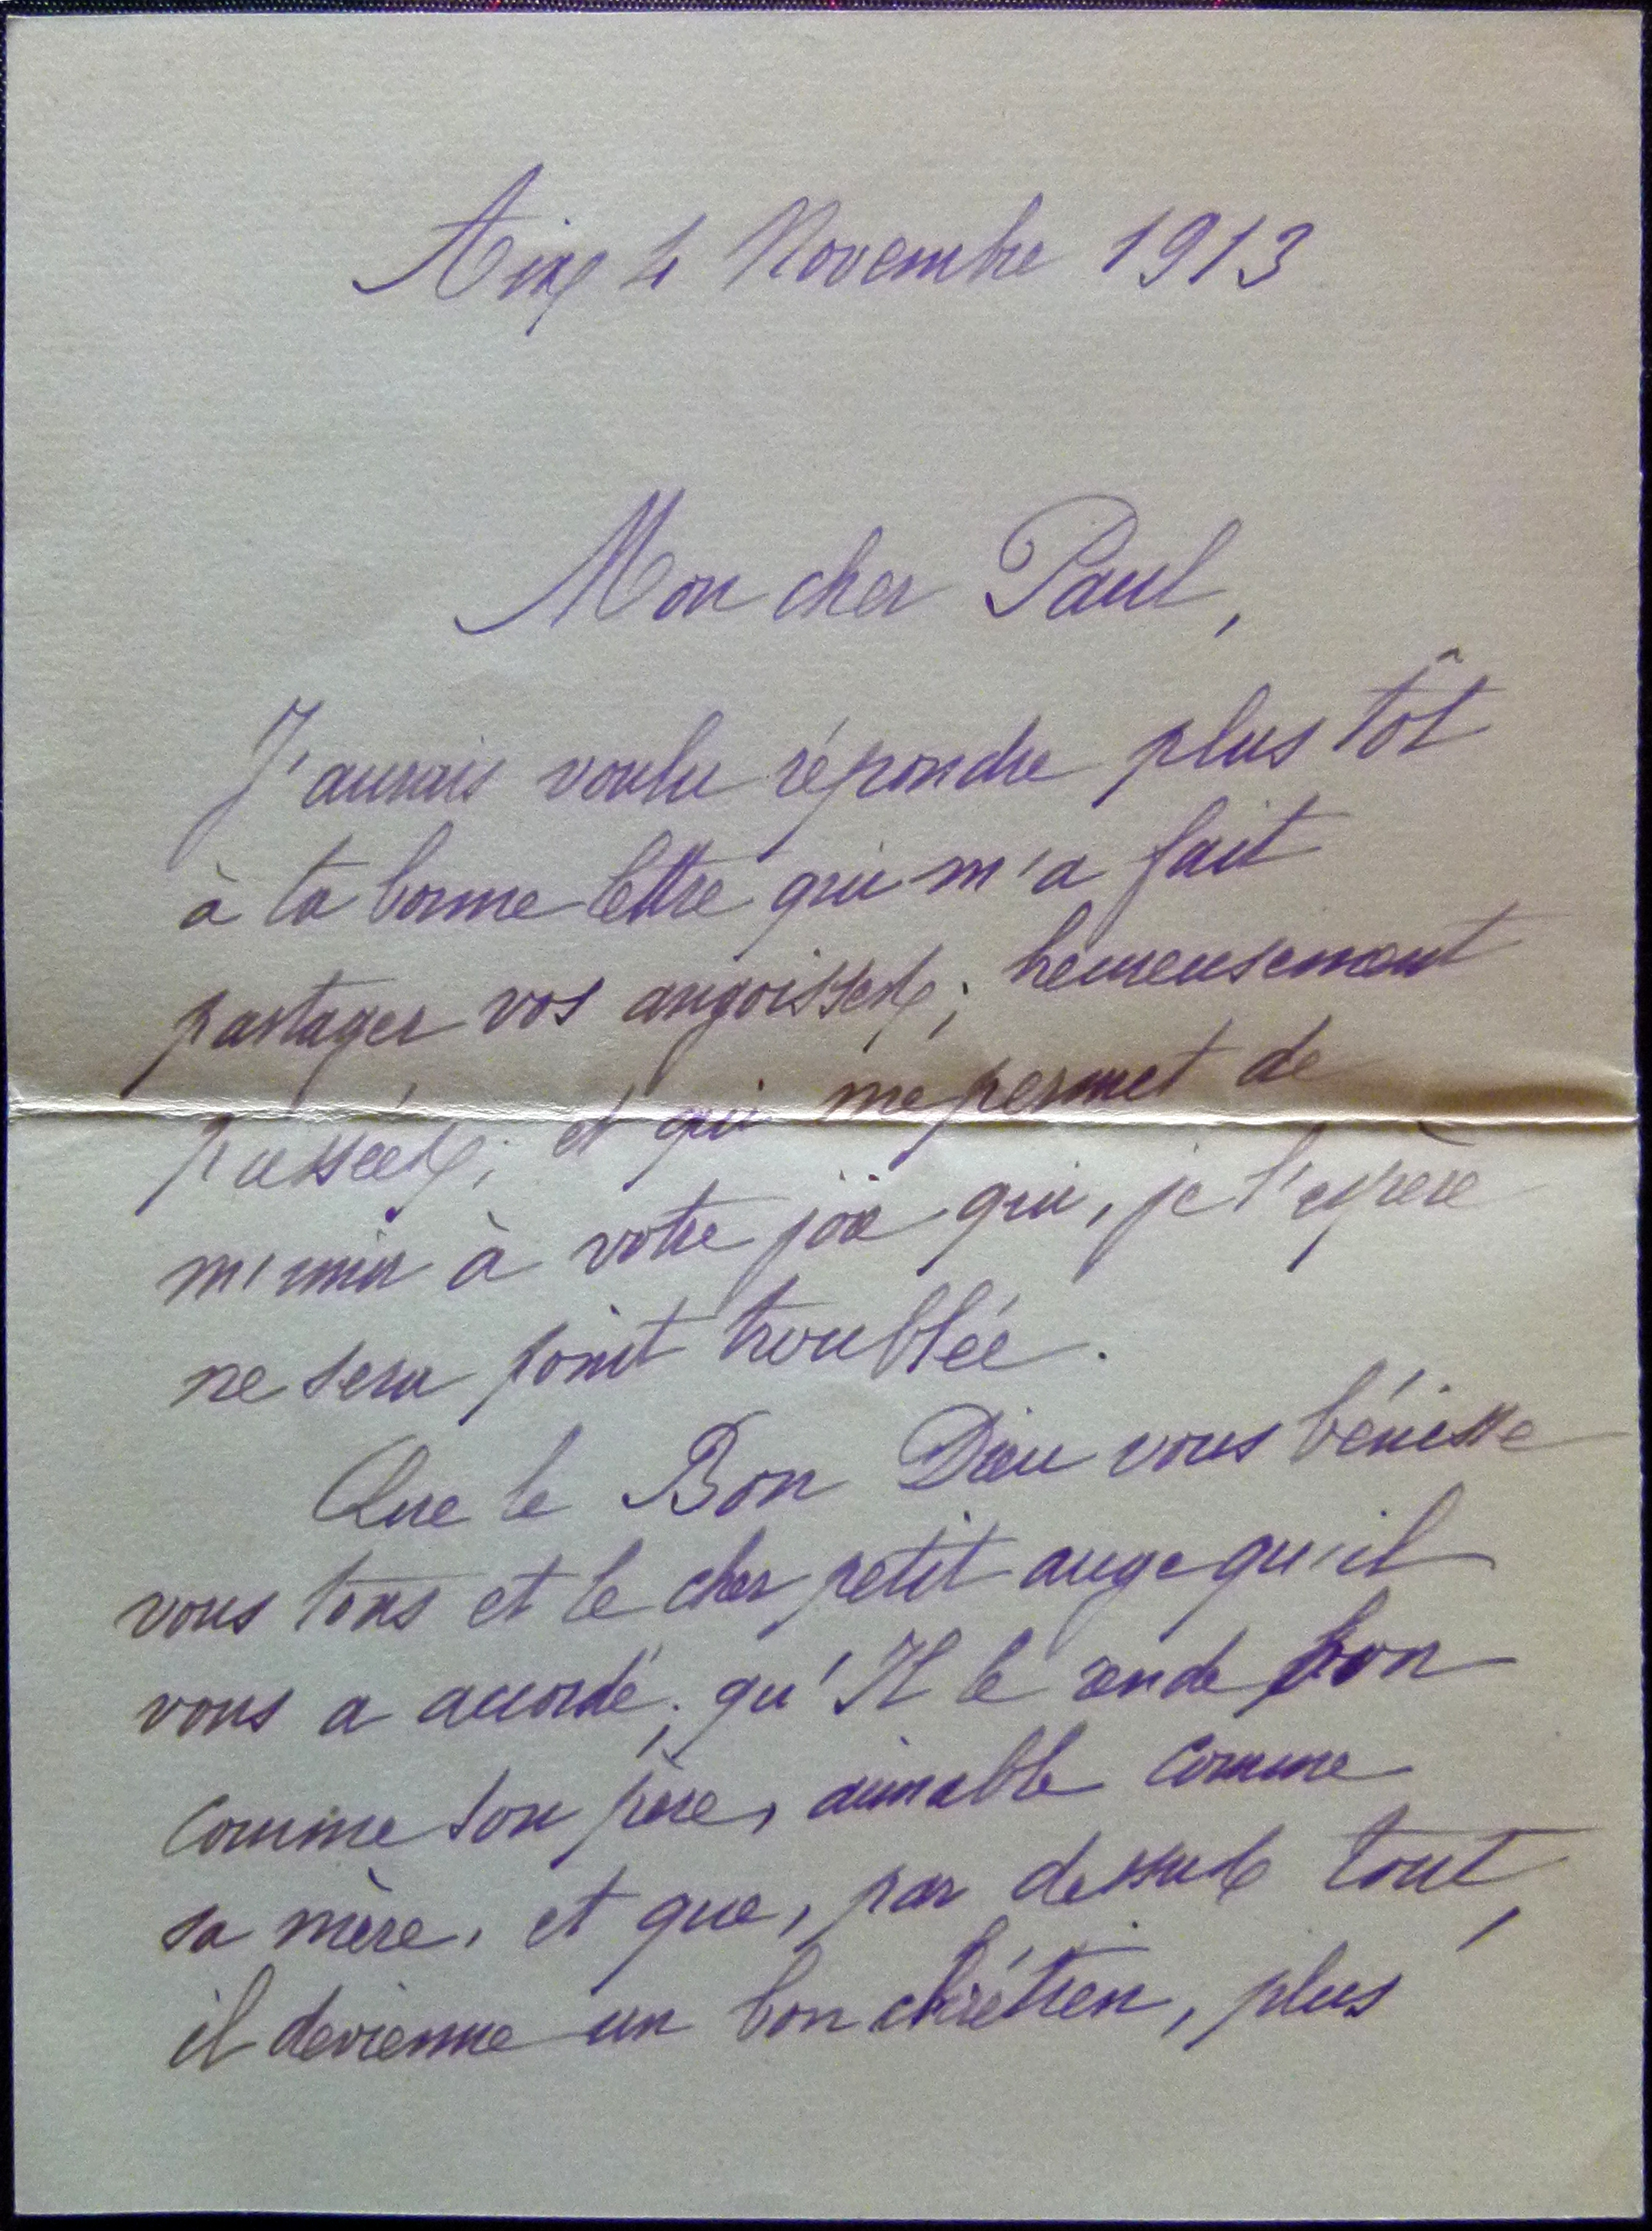 Aix 4 Novembre 1913
Mon cher Paul,
J'aurais voulu répondre plus tôt
à ta bonne lettre qui m'a fait
partager vos angoisses, heureusement
passées, et qui me permet de
m'unir à votre joie qui, je l'espère
ne sera point troublée.
Que le Bon Dieu vous bénisse
vous tous et le cher petit ange qu'il
vous a accordé; qu'Il le rende bon
comme son père, aimable comme
sa mère, et que, par dessus tout,
il devienne un bon chrétien, plus